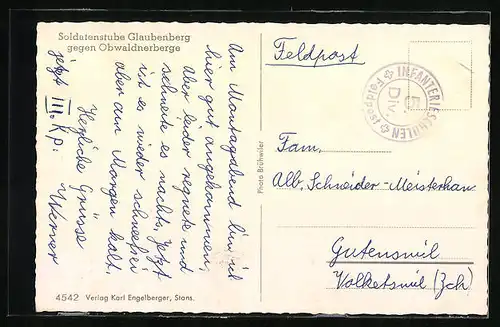 Soldatenstube Glaubenberg
gegen Obwaldnerberge
Am Montagabend bin ich
hier gut angekommen,
aber leider regnete und
schneite es nachts, jetzt
ist es wieder schneefrei
aber am Morgen kalt.
Herzliche Grüsse
Werner
jetzt III. Kp.
4542 Verlag Karl Engelberger, Stans.
Photo Brühwiler
Feldpost
INFANTERIESCHULEN
Feldpost
Div.
Fam.
Alb. Schneider-Meisterhans
Gutenswil
Volketswil (Zch)